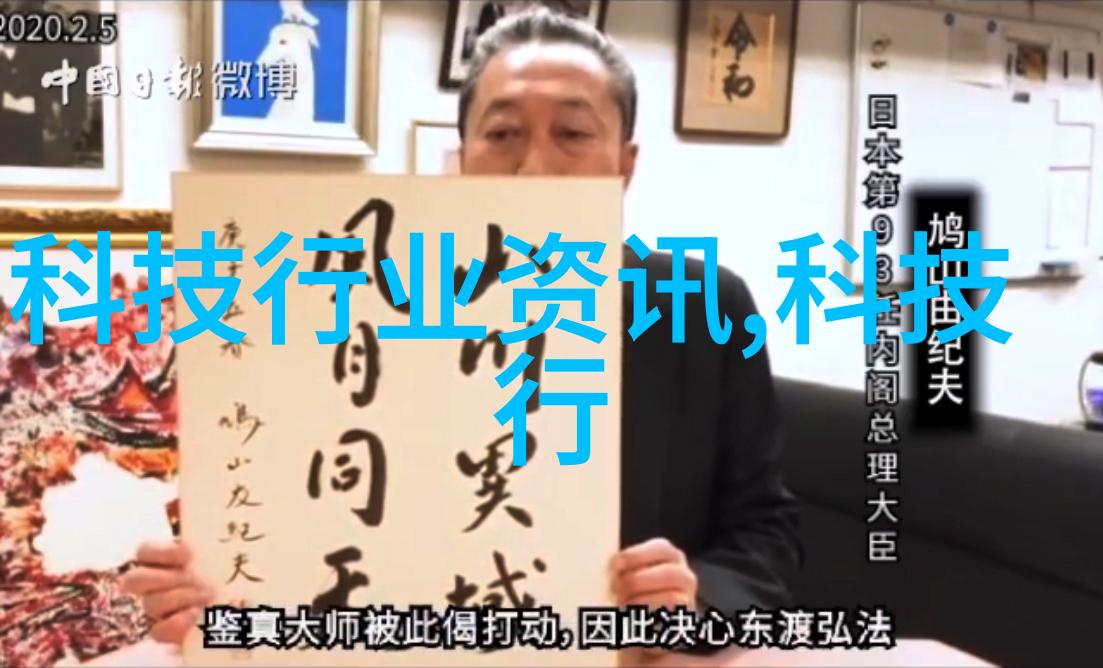 2020.2.5
中國日報微博
令和
日本第93任内阁总理大臣
鸠山由纪夫
科技行业资讯,科技
行
山川異域
風月同天
庚子立春 鳩山友紀夫
鉴真大师被此偈打动,因此决心东渡弘法